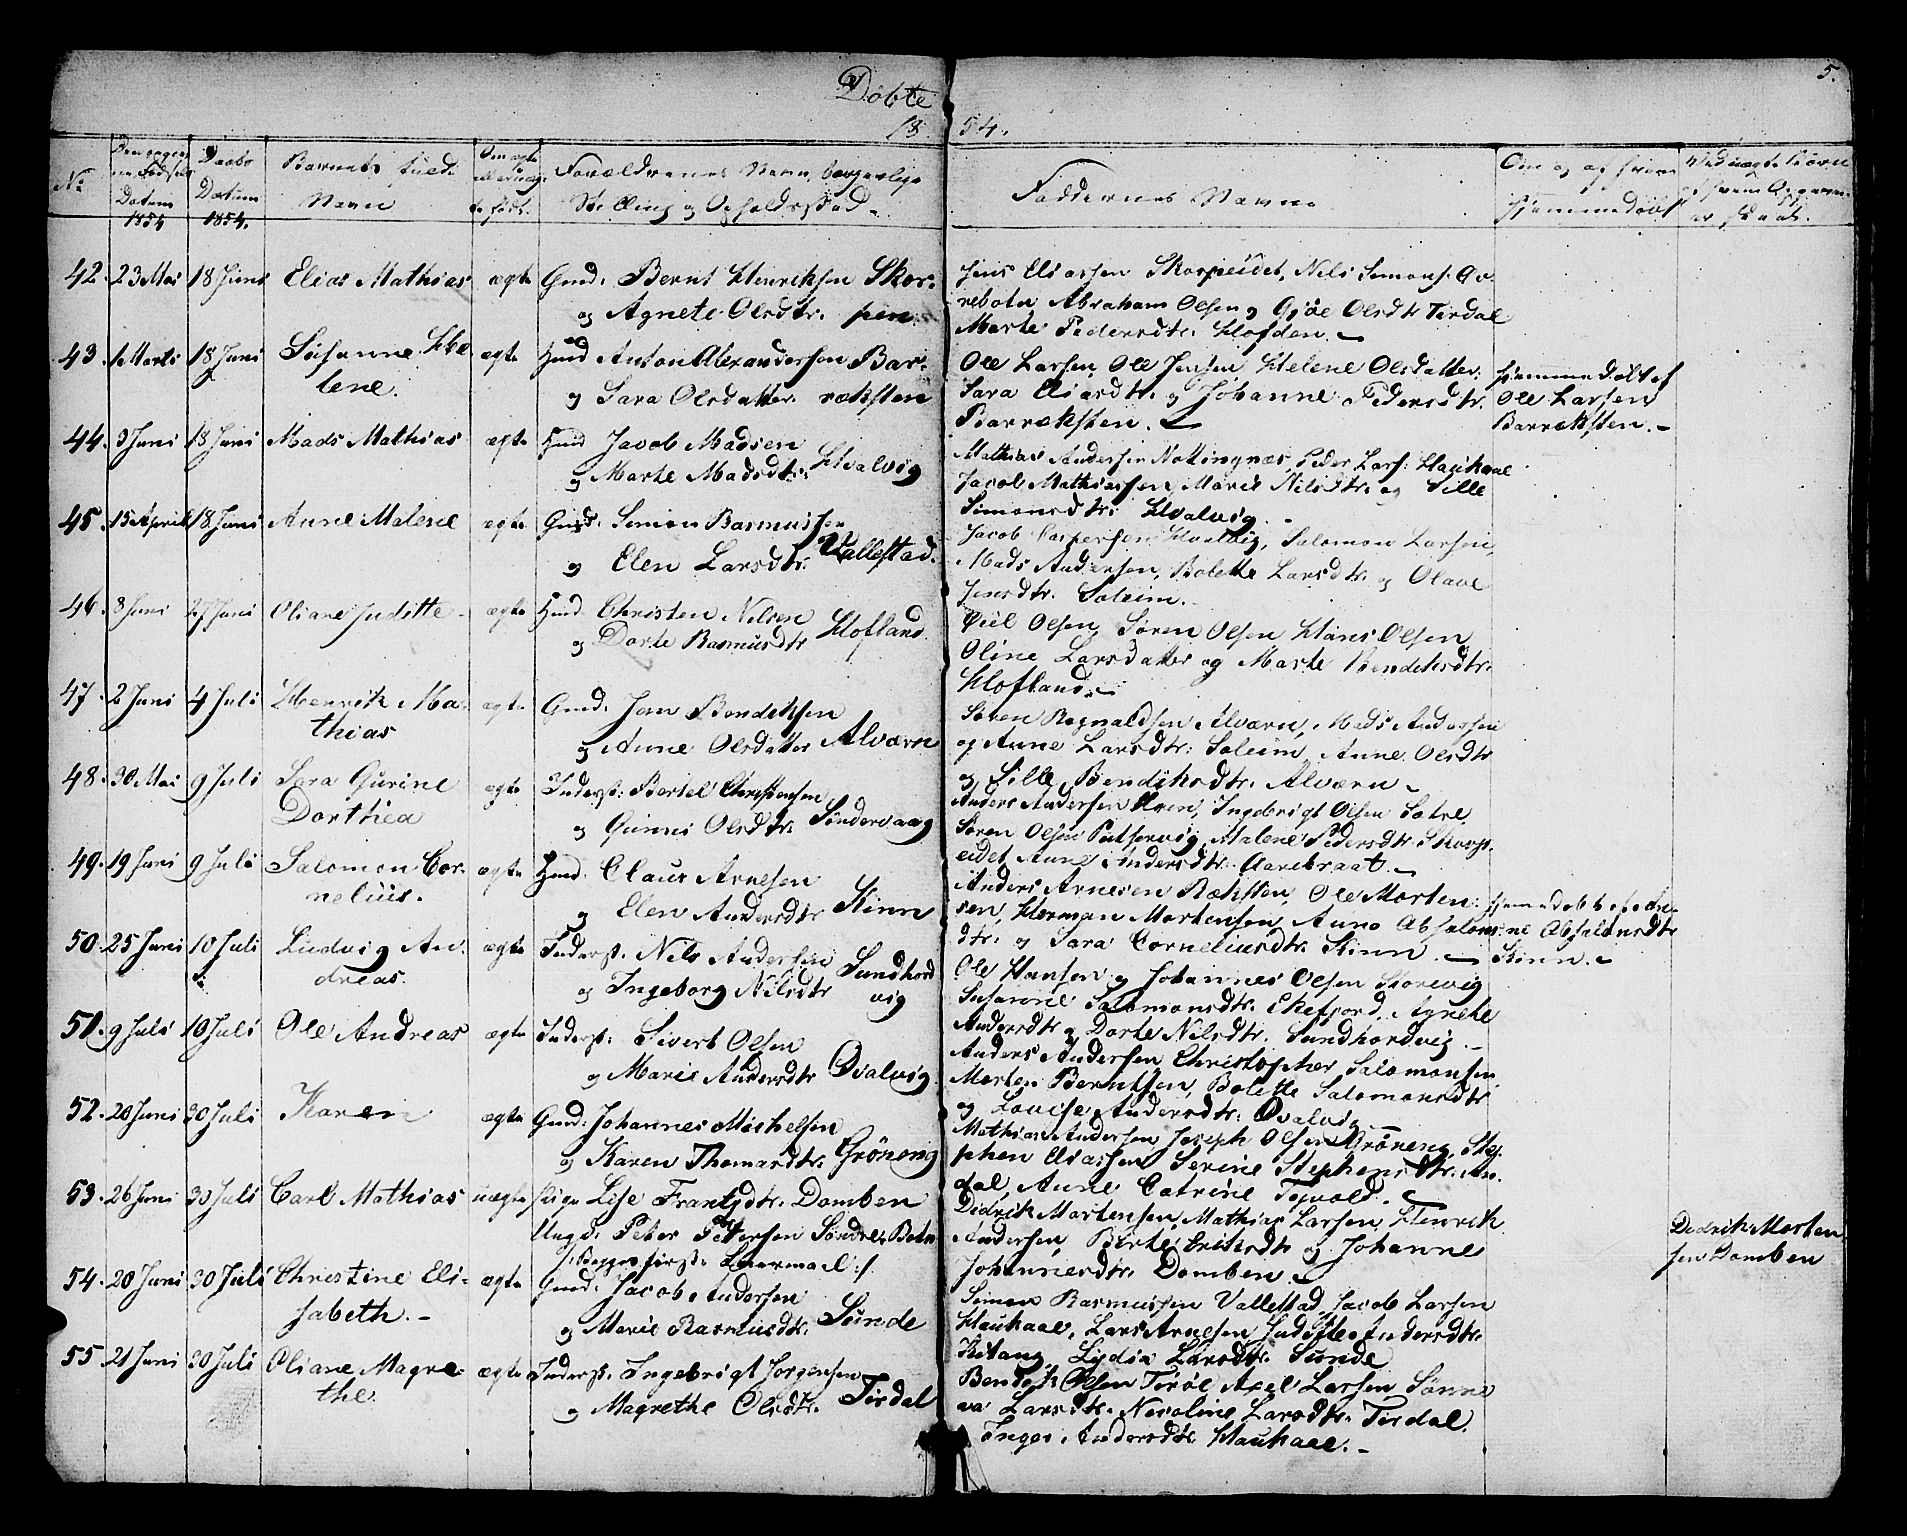 5.
Döbte
18 54.
No
Datum
1854
Daabs
Datum
1854.
Barnets fulde
Navn
Om ægte
Forældrenes Navn, borgerlige
Stilling og Opholdssted
Faddernes Navne
Om og af hvem
hjemmedöbt
42. 23 Mai 18 Juni Elias Mathias ægte Gmd: Bernt Henriksen Skor-
og Agnete Olsdtr. pen.
Jens Eliassen Skorpeidet, Nils Simons.
rebotn Abraham Olsen og Gjöe Olsdtr Tirdal
Marte Pedersdtr. Hofden.
43. 1 Marts 18 Juni Susanne He- ægte Hmd Anton Alexandersen Bar-
lene. og Sara Olsdatter. ræksten
Ole Larsen, Ole Jensen, Helene Olsdatter.
Sara Eliasdtr. og Johanne Pedersdtr.
Barræksten.
Hjemmedöbt af
Ole Larsen
Barræksten.
44. 3 Juni 18 Juni Mads Mathias ægte Hmd Jacob Madsen
og Marte Madsdtr. Hvalvig
Mathias Andersen Nottingnæs, Peder Lars: Haukaae
Jacob Mathiassen, Marie Nilsdtr. og Sille
Simonsdtr. Hvalvig.
45. 15 April 18 Juni Anne Malene ægte Gmd: Simon Rasmussen
og Elen Larsdtr. Vallestad.
Jacob Caspersen Hvalvig, Salomon Larsen,
Mads Andersen, Bolette Larsdtr. og Olave
Jensdtr. Soleim.
46. 8 Juni 27 Juni Oliane Juditte ægte Hmd. Christen Nilsen
og Dorte Rasmusdtr Hofland.
Olsen, Sören Olsen Hans Olsen
Oline Larsdatter og Marte Bendiksdtr.
Hofland.
47. 2 Juni 4 Juli Henrik Ma- ægte Gmd: Jon Bendiksen
thias og Anne Olsdatter Alværn
Sören Regnaldsen Alværn, Mads Andersen
og Anne Larsdtr: Soleim, Anne Olsdtr
og Sille Bendiksdtr. Alværn
48. 30 Mai 9 Juli Sara Gurine ægte Inderst: Bertel Christensen
Dorthea og Gunni Olsdtr. Söndervaag
Anders Andersen Hven, Ingebrigt Olsen Sætre
Sören Olsen Malene Pedersdtr. Skorp-
eidet Anne Andersdtr. Aarebraat.
49. 19 Juni 9 Juli Salomon Cor- ægte Hmd. Claus Arnesen
nelius. og Elen Andersdtr Kinn
Anders Arnesen Ræksten, Ole Morten-
sen, Herman Mortensen, Anne Absalons-
dtr. og Sara Corneliusdtr. Kinn.
Absalonsdtr
Kinn.
50. 25 Juni 10 Juli Ludvig An- ægte Inderst. Nils Andersen
dreas. og Ingeborg Nilsdtr Sundhord
vig
Ole Hansen og Johannes Olsen Storevig
Susanne Salomonsdtr. Ekefjord, Agnete
Andersdtr og Dorte Nilsdtr. Sundhordvig.
51. 9 Juli 10 Juli Ole Andreas ægte Inderst: Sivert Olsen
og Marie Andersdtr Qvalvig
Anders Andersen Christopher Salomonsen
Morten Berntsen, Bolette Salomonsdtr
og Lovise Andersdtr. Qvalvig
52. 20 Juni 30 Juli Karen ægte Gmd: Johannes Michelsen
og Karen Thomasdtr. Gröneng
Mathias Andersen Joseph Olsen Gröneng, Ste-
phen Eliassen Serine Stephensdtr. An-
dal, Anne Catrine Tofvold.
53. 26 Juni 30 Juli Carl Mathias uægte Pige Lise Frantzdtr. Domben
Ungd. Peter Petersen Söndre Botn
/: Begges förste Leiermaal :/
Didrik Mortensen, Mathias Larsen, Henrik
Andersen, Birte Eriksdtr og Johanne
Johannesdtr. Domben
Didrik Morten
sen Domben
54. 20 Juni 30 Juli Christine Eli- ægte Gmd: Jacob Andersen
sabeth. og Marie Rasmusdtr. Sunde
Simon Rasmussen Vallestad, Jacob Larsen
Haukaae, Lars Arnesen, Juditte Andersdtr
Kitang, Lydia Larsdtr. Sunde
55. 21 Juni 30 Juli Oliane Magre- ægte Inderst. Ingebrigt Jörgensen
the. og Magrethe Olsdtr. Tirdal
Bendik Olsen Axel Larsen Sönne
va Larsdtr. Nicoline Larsdtr. Tirdal.
Inger Andersdtr Haukaae.